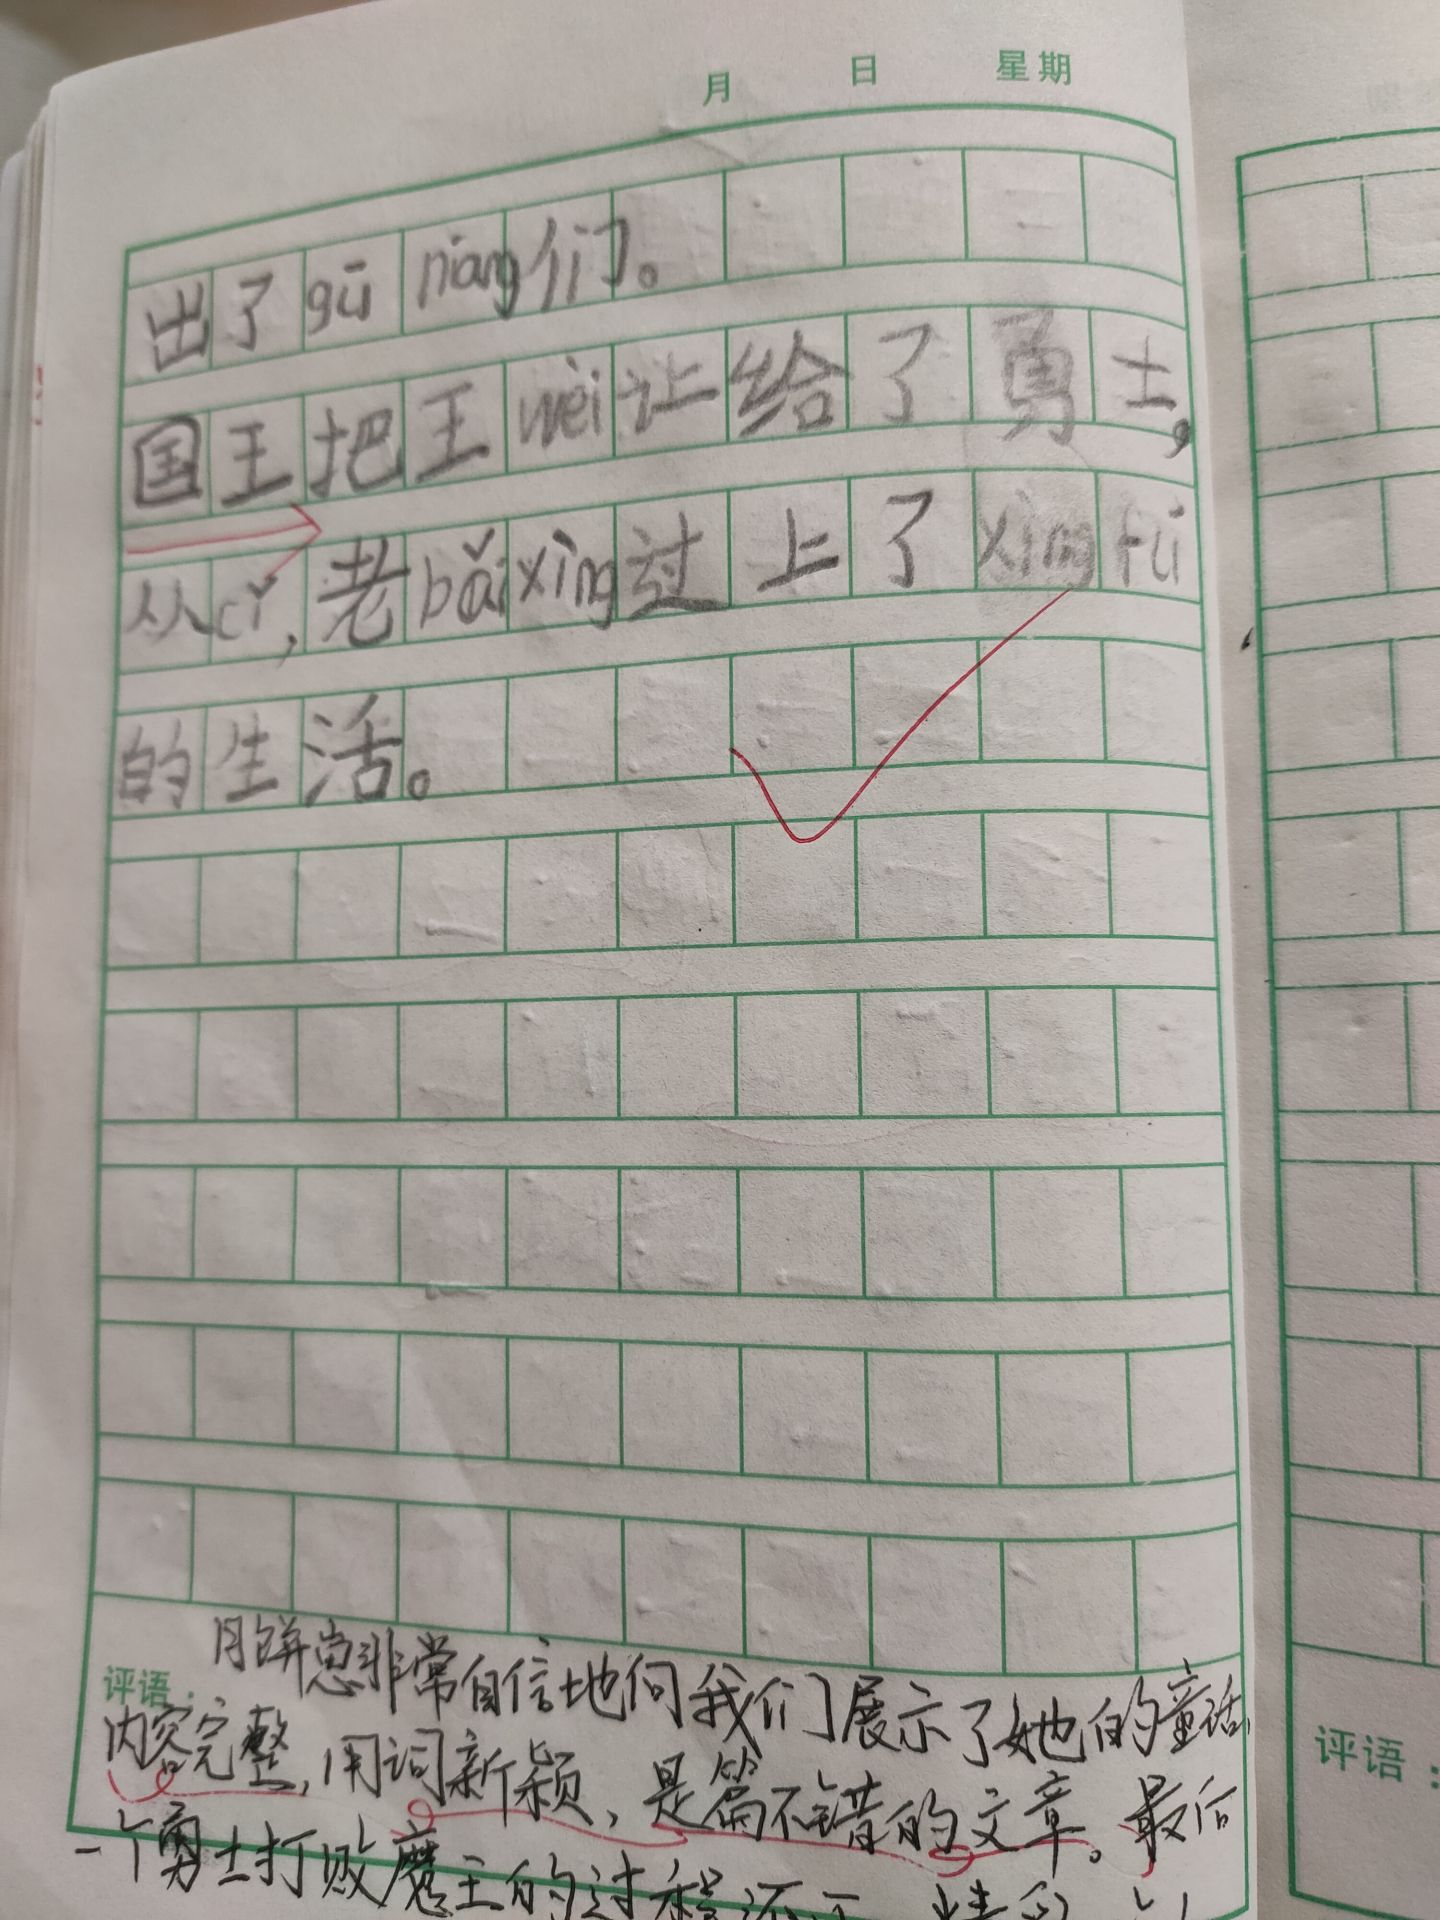 月 日 星期
出了gū niang们。
国王把王wèi让给了勇士。
从cǐ,老bǎixìng过上了xìngfú
的生活。
评语:
月饼崽非常自信地向我们展示了她的童话,
内容完整,用词新颖,是篇不错的文章。最后
一个勇士打败魔王的过程还可
评语: